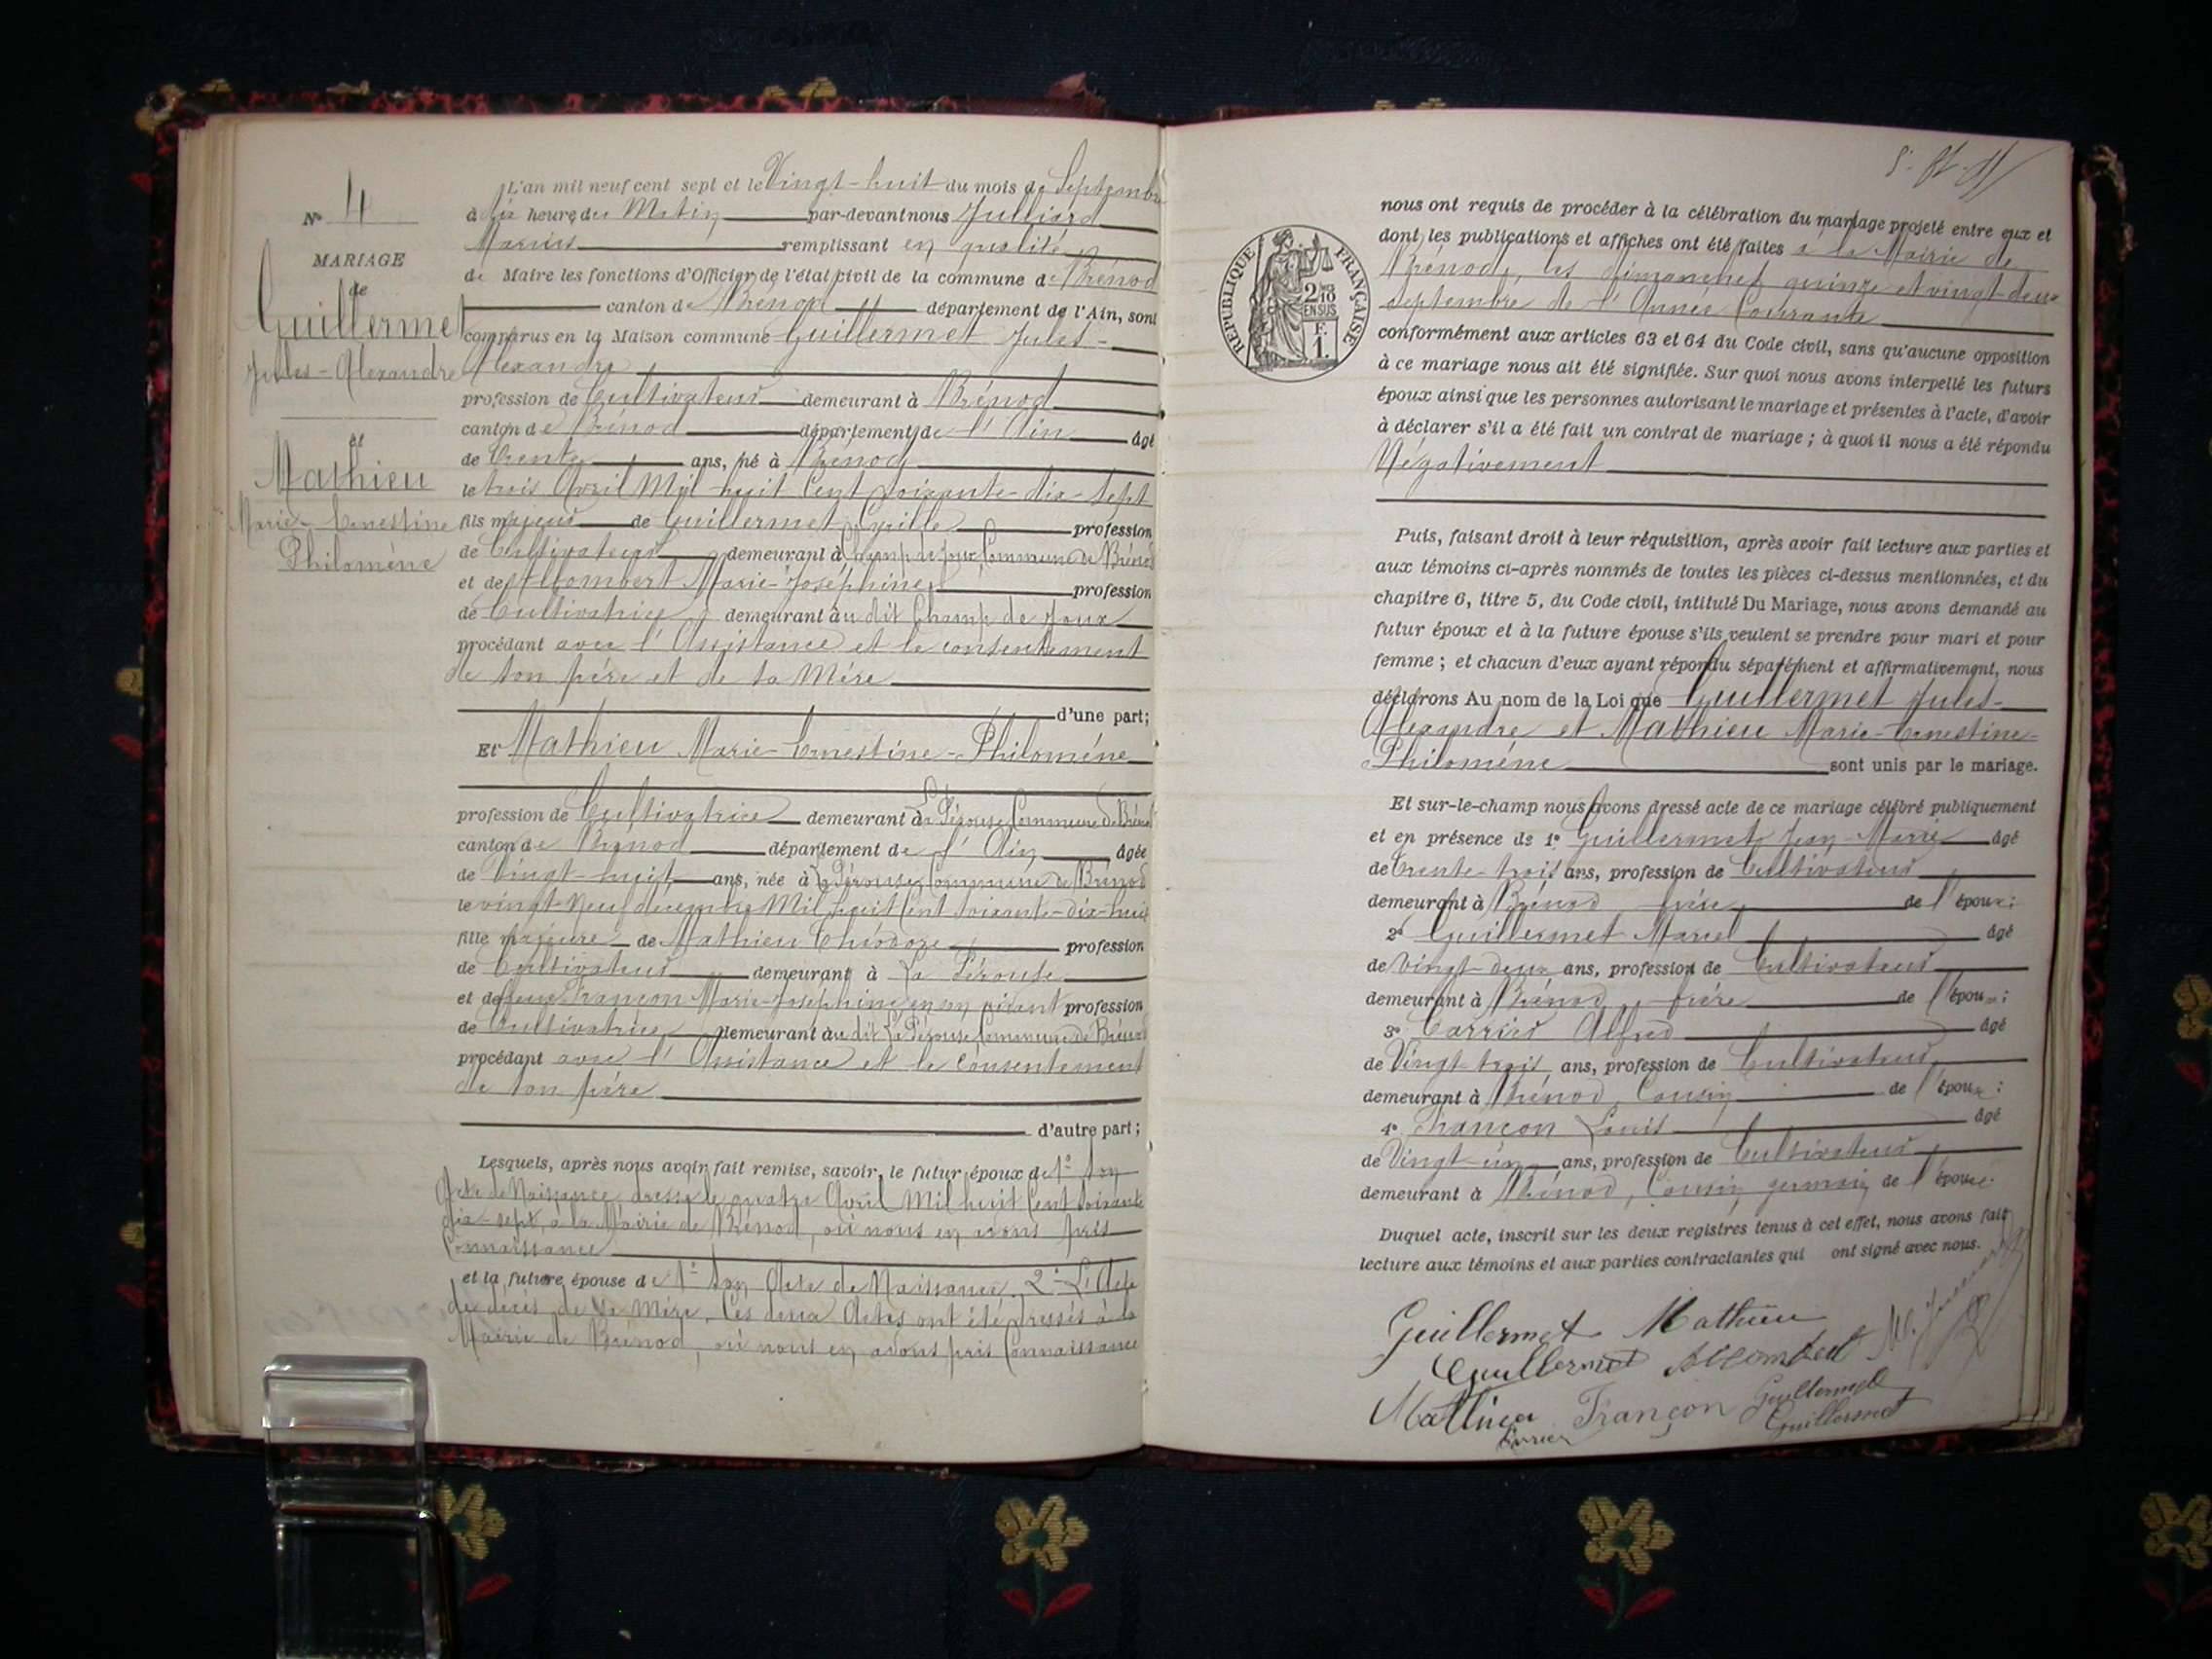 N° 4
MARIAGE
de
Guillermet
Jules-Alexandre
et
Mathieu
Marie-Ernestine
Philoméne
L'an mil neuf cent sept et le Vingt-huit du mois de Septembre
à dix heures du Matin par-devant nous Julliard
Marius remplissant en qualité
de Maire les fonctions d'Officier de l'état civil de la commune de Brénod
canton de Brénod département de l'Ain, sont
comparus en la Maison commune Guillermet Jules-
Alexandre
profession de Cultivateur demeurant à Brénod
canton de Brénod département de l'Ain âgé
de trente ans, né à Brénod
le trois Avril Mil huit Cent soixante-dix-sept
fils majeur de Guillermet Cyrille profession
de Cultivateur demeurant à Champ de Joux Commune de Brénod
et de Allombert Marie-Joséphine profession
de Cultivatrice demeurant au dit Champ de Joux
procédant avec l'Assistance et le consentement
de son père et de sa Mére
d'une part;
Et Mathieu Marie-Ernestine-Philoméne
profession de Cultivatrice demeurant à La Pérouse Commune de Brénod
canton de Brénod département de l'Ain âgée
de Vingt-huit ans, née à La Pérouse Commune de Brénod
le vingt-Neuf décembre Mil huit Cent soixante-dix-huit
fille majeure de Mathieu Théodore profession
de Cultivateur demeurant à La Pérouse
et de feue Françon Marie-Joséphine en son vivant profession
de Cultivatrice demeurant au dit La Pérouse Commune de Brénod
procédant avec l'Assistance et le consentement
de son père
d'autre part;
Lesquels, après nous avoir fait remise, savoir, le futur époux de 1° son
Acte de Naissance dressé le quatre Avril Mil huit Cent soixante
dix-sept, à la Mairie de Brénod, où nous en avons pris
Connaissance
et la future épouse de 1° son Acte de Naissance. 2° L'Acte
de décès de sa Mére. Ces deux Actes ont été dressés à la
Mairie de Brénod, où nous en avons pris Connaissance
RÉPUBLIQUE FRANÇAISE
2/10
EN SUS
F.
1.
nous ont requis de procéder à la célébration du mariage projeté entre eux et
dont les publications et affiches ont été faites à la Mairie de
Brénod, les dimanches quinze et vingt-deux
Septembre de l'Année Courante
conformément aux articles 63 et 64 du Code civil, sans qu'aucune opposition
à ce mariage nous ait été signifiée. Sur quoi nous avons interpellé les futurs
époux ainsi que les personnes autorisant le mariage et présentes à l'acte, d'avoir
à déclarer s'il a été fait un contrat de mariage; à quoi il nous a été répondu
Négativement
Puis, faisant droit à leur réquisition, après avoir fait lecture aux parties et
aux témoins ci-après nommés de toutes les pièces ci-dessus mentionnées, et du
chapitre 6, titre 5, du Code civil, intitulé Du Mariage, nous avons demandé au
futur époux et à la future épouse s'ils veulent se prendre pour mari et pour
femme; et chacun d'eux ayant répondu séparément et affirmativement, nous
déclarons Au nom de la Loi que Guillermet Jules-
Alexandre et Mathieu Marie-Ernestine-
Philoméne sont unis par le mariage.
Et sur-le-champ nous avons dressé acte de ce mariage célébré publiquement
et en présence de 1° Guillermet Jean-Marie âgé
de trente-trois ans, profession de Cultivateur
demeurant à Brénod frére de l'époux;
2° Guillermet Marcel âgé
de vingt-deux ans, profession de Cultivateur
demeurant à Brénod, frére de l'époux;
3° Carrier Alfred âgé
de Vingt-trois ans, profession de Cultivateur
demeurant à Brénod, Cousin de l'époux;
4° Françon Louis âgé
de Vingt-un ans, profession de Cultivateur
demeurant à Brénod, Cousin germain de l'épouse.
Duquel acte, inscrit sur les deux registres tenus à cet effet, nous avons fait
lecture aux témoins et aux parties contractantes qui ont signé avec nous.
Guillermet Mathieu
Guillermet Allombert
Mathieu Françon Guillermet
Carrier Guillermet